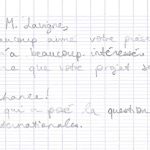 M. Lavigne,
aucoup aimé votre prése
'a beaucoup intéressés
que votre projet s
chance!
qui a posé la question
ternationales.